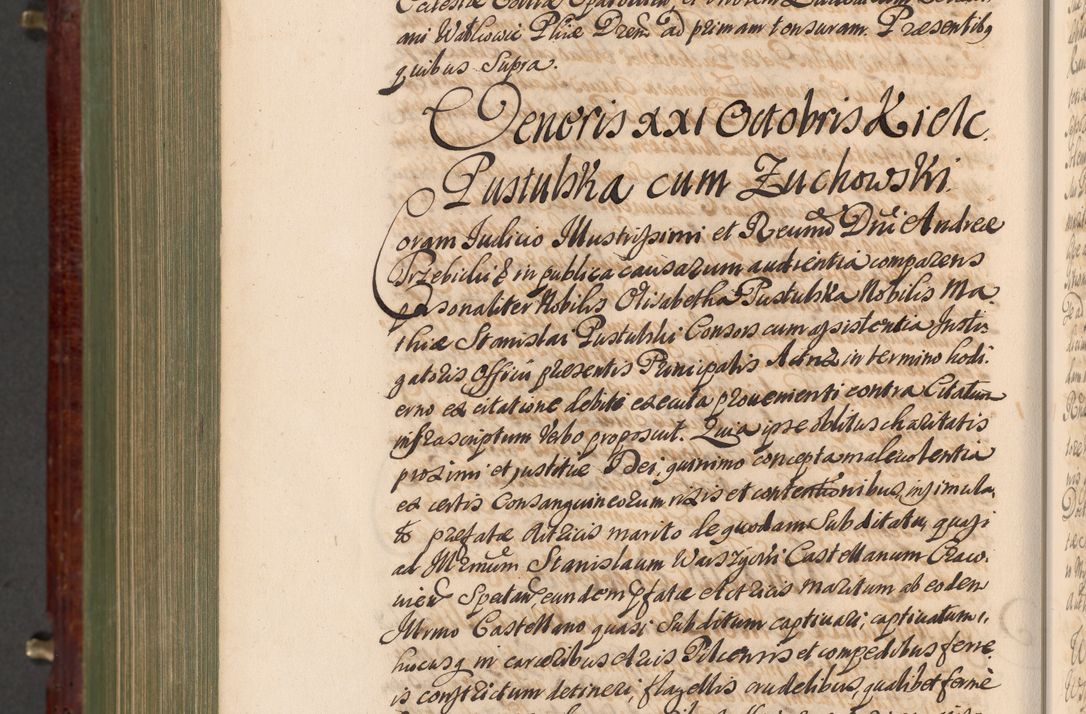 ani Watkowic Phiæ Drem ad primam tonsuram. Præsentibq
quibus supra.
Veneris xxi Octobris Kielc.
Pustulska cum Zuchowski.
Coram Iudicio Illustrissimi et Reumd Dni Andreæ
Trzebicki & in publica causarum audientia comparens
personaliter Nobilis Elisabetha Pustulska Nobilis Ma
thiæ Stanislai Pustulski Consors cum assistentia Insti
gatoris Officii præsentis Principalis Actrix in termino hodi
erno ex citatione debite executa provenienti contra Citatum
infrascriptum verbo proposuit. Quia ipse oblitus charitatis
proximi et justitiæ Dei, quinimo concepta malevolentia
ex certis consanguineorum rixis et contentionibus, insimula
to præfatæ Actricis marito de quodam subditatu, quasi
ad Mcmum Stanislaum Warszycki Castellanum Craco
vien Spectan, eundem pfatæ Actricis maritum ab eodem
Illrmo Castellano quasi subditum captivari, captivatum,
hucusq in carceribus Arcis Pilcensis et compedibus ferre
is constrictum detineri, flagellis crudelibus, qualibet fermè